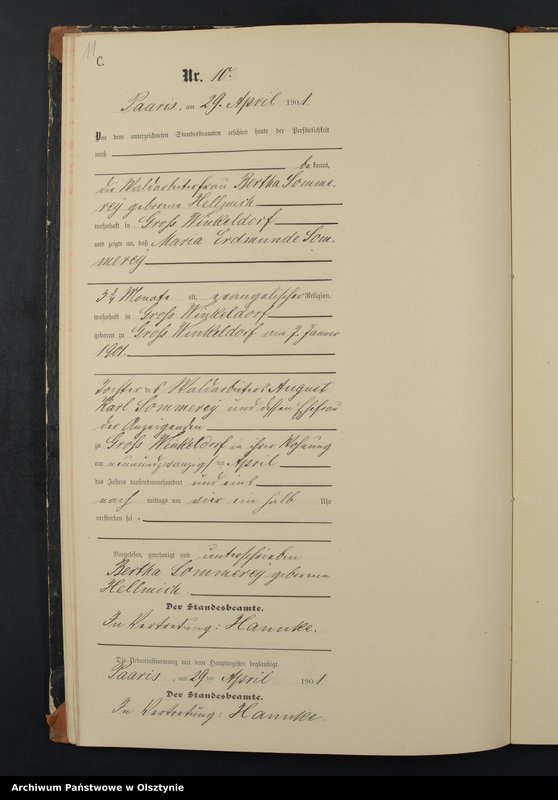 11
C.
Nr. 10.
Paaris. am 29. April 1901.
Vor dem unterzeichneten Standesbeamten erschien heute der Persönlichkeit
nach
bekannt,
die Waldarbeiterfrau Bertha Somme-
rey geborene Hellmich
wohnhaft in Groß Winkeldorf
und zeigte an, daß Maria Erdmunde Som-
merey
3¾ Monate alt, evangelischer Religion,
wohnhaft in Groß Winkeldorf
geboren zu Groß Winkeldorf am 7. Januar
1901.
Tochter des Waldarbeiters August
Karl Sommerey und dessen Ehefrau
der Anzeigenden
zu Groß Winkeldorf in ihrer Wohnung
am neunundzwanzigsten April
des Jahres tausendneunhundert und eins
nachmittags um vier ein halb Uhr
verstorben sei.
Vorgelesen, genehmigt und unterschrieben
Bertha Sommerey geborene
Hellmich
Der Standesbeamte.
In Vertretung: Hannke.
Die Uebereinstimmung mit dem Hauptregister beglaubigt.
Paaris. am 29ten April 1901.
Der Standesbeamte.
In Vertretung: Hannke.
Archiwum Państwowe w Olsztynie